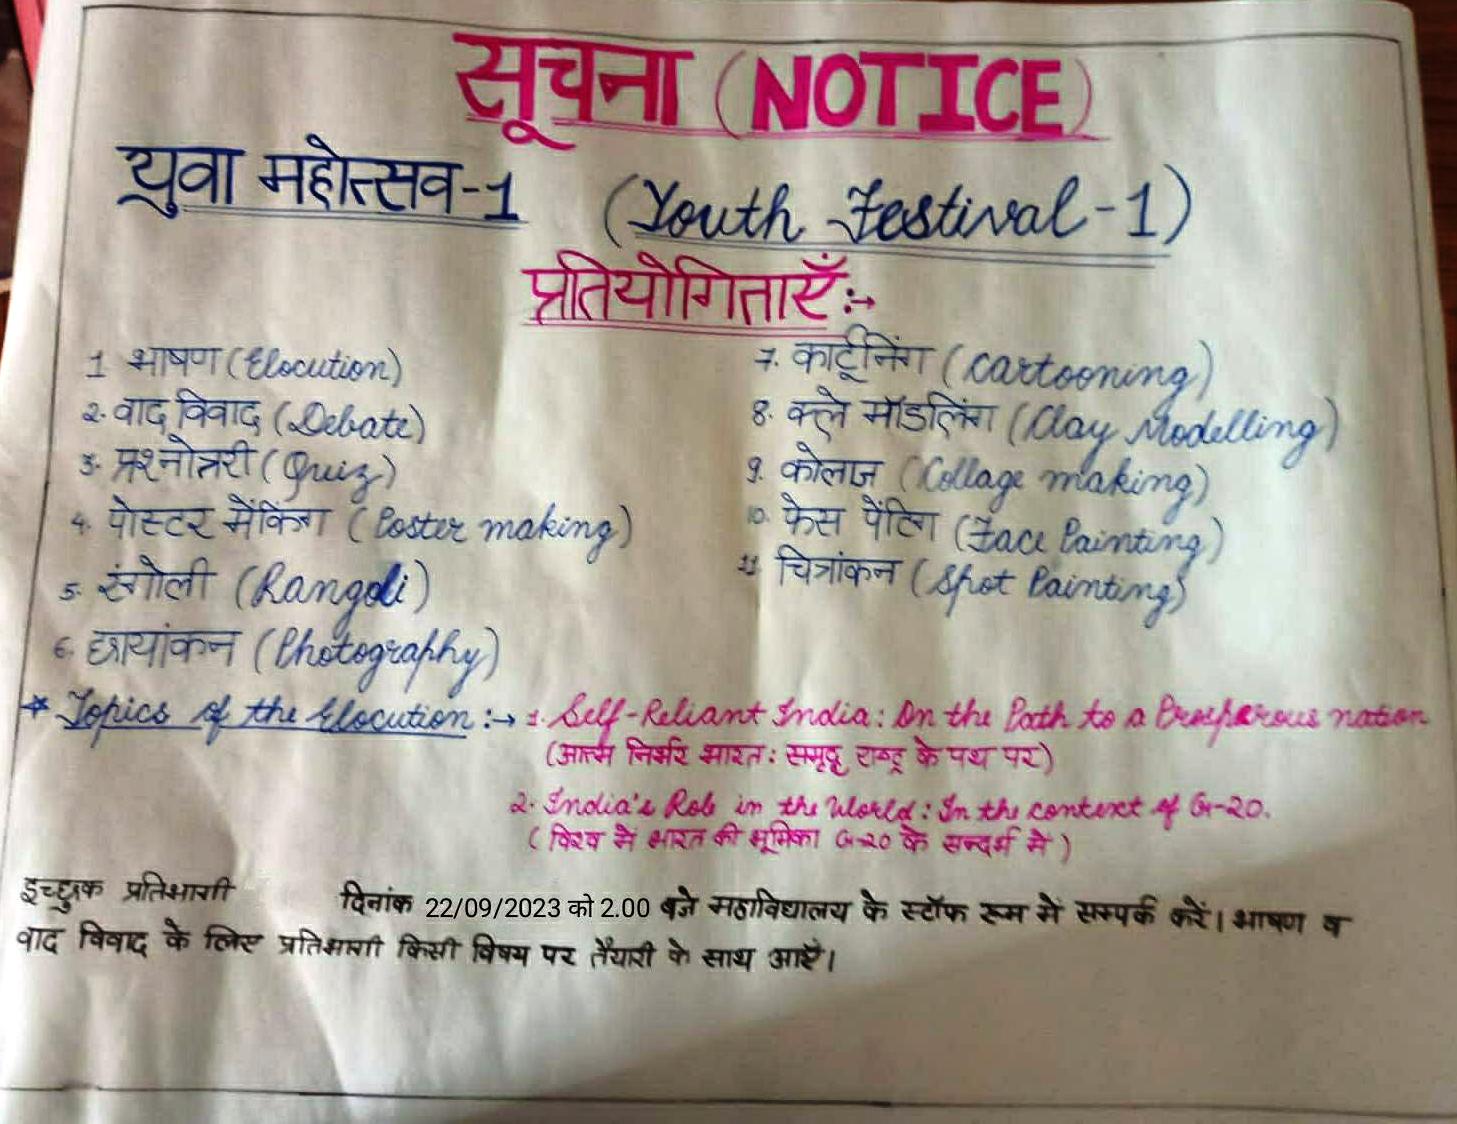 सूचना (NOTICE)
युवा महोत्सव-1 (Youth Festival-1)
प्रतियोगिताएँ :→
1 भाषण (Elocution)
2. वाद विवाद (Debate)
3. प्रश्नोत्तरी (Quiz)
4. पोस्टर मेंकिंग (Poster making)
5. रंगोली (Rangoli)
6. छायांकन (Photography)
7. कार्टूनिंग (Cartooning)
8. क्ले मॉडलिंग (Clay Modelling)
9. कोलाज (Collage making)
10. फेस पेंटिग (Face Painting)
11 चित्रांकन (Spot Painting)
* Topics of the Elocution :→ 1. Self-Reliant India: On the Path to a Prosperous nation
(आत्म निर्भर भारत: समृद्ध राष्ट्र के पथ पर)
2. India's Role in the World: In the context of G-20.
(विश्व में भारत की भूमिका G-20 के सन्दर्भ में)
इच्छुक प्रतिभागी दिनांक 22/09/2023 को 2.00 बजे महाविद्यालय के स्टॉफ रूम में सम्पर्क करें। भाषण व
वाद विवाद के लिए प्रतिभागी किसी विषय पर तैयारी के साथ आएँ।